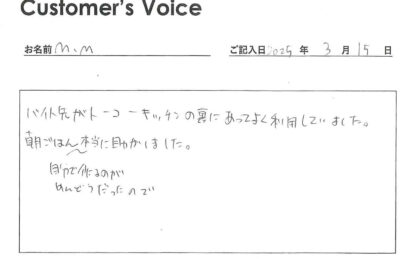 Customer's Voice
お名前 M.M ご記入日 2025 年 3 月 15 日
バイト先がトーコーキッチンの裏にあってよく利用していました。
朝ごはん本当に助かりました。
自分で作るのが
めんどうだったので